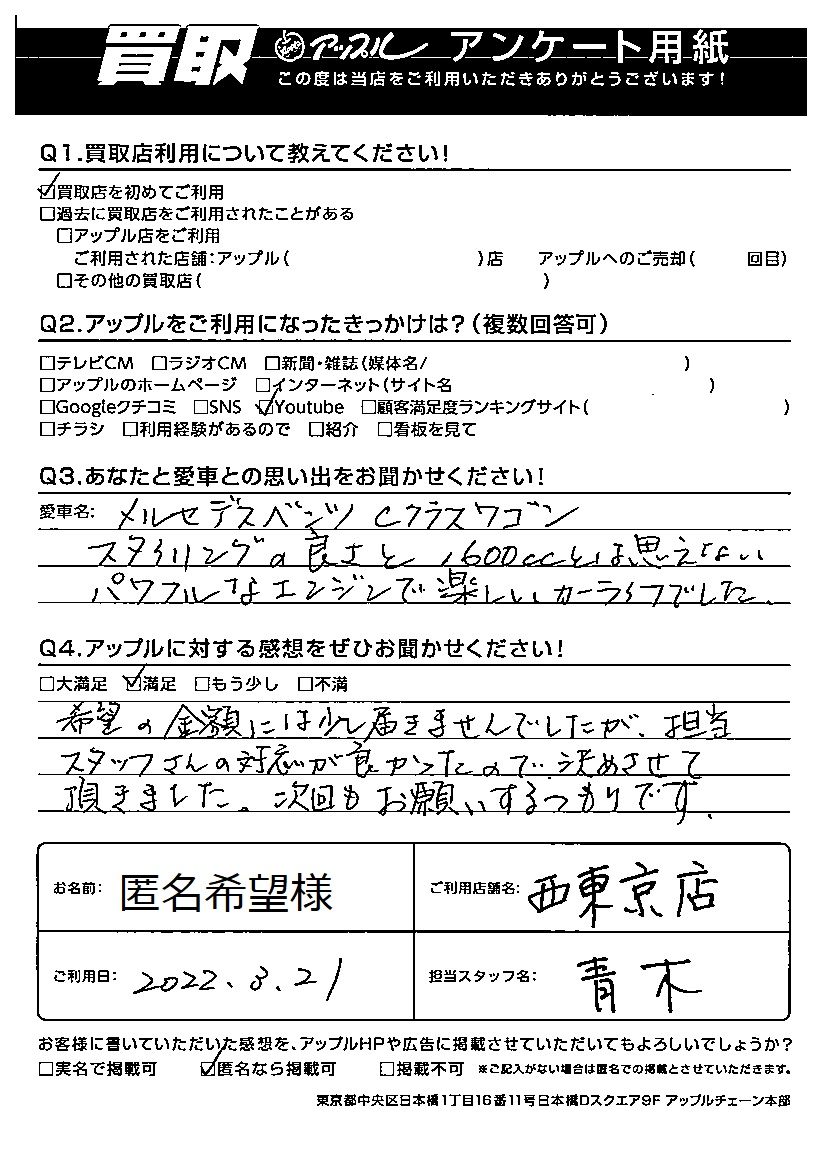 買取 アップル アンケート用紙
この度は当店をご利用いただきありがとうございます!
Q1.買取店利用について教えてください!
☑買取店を初めてご利用
□過去に買取店をご利用されたことがある
□アップル店をご利用
ご利用された店舗:アップル( )店 アップルへのご売却( 回目)
□その他の買取店( )
Q2.アップルをご利用になったきっかけは?(複数回答可)
□テレビCM □ラジオCM □新聞・雑誌(媒体名/ )
□アップルのホームページ □インターネット(サイト名 )
□Googleクチコミ □SNS ☑Youtube □顧客満足度ランキングサイト( )
□チラシ □利用経験があるので □紹介 □看板を見て
Q3.あなたと愛車との思い出をお聞かせください!
愛車名: メルセデスベンツ Cクラスワゴン
スタイリングの良さと1600ccとは思えない
パワフルなエンジンで楽しいカーライフでした。
Q4.アップルに対する感想をぜひお聞かせください!
□大満足 ☑満足 □もう少し □不満
希望の金額には少し届きませんでしたが、担当
スタッフさんの対応が良かったので決めさせて
頂きました。次回もお願いするつもりです。
お名前: 匿名希望様 ご利用店舗名: 西東京店
ご利用日: 2022.3.21 担当スタッフ名: 青木
お客様に書いていただいた感想を、アップルHPや広告に掲載させていただいてもよろしいでしょうか?
□実名で掲載可 ☑匿名なら掲載可 □掲載不可 ※ご記入がない場合は匿名での掲載とさせていただきます。
東京都中央区日本橋1丁目16番11号日本橋Dスクエア9F アップルチェーン本部